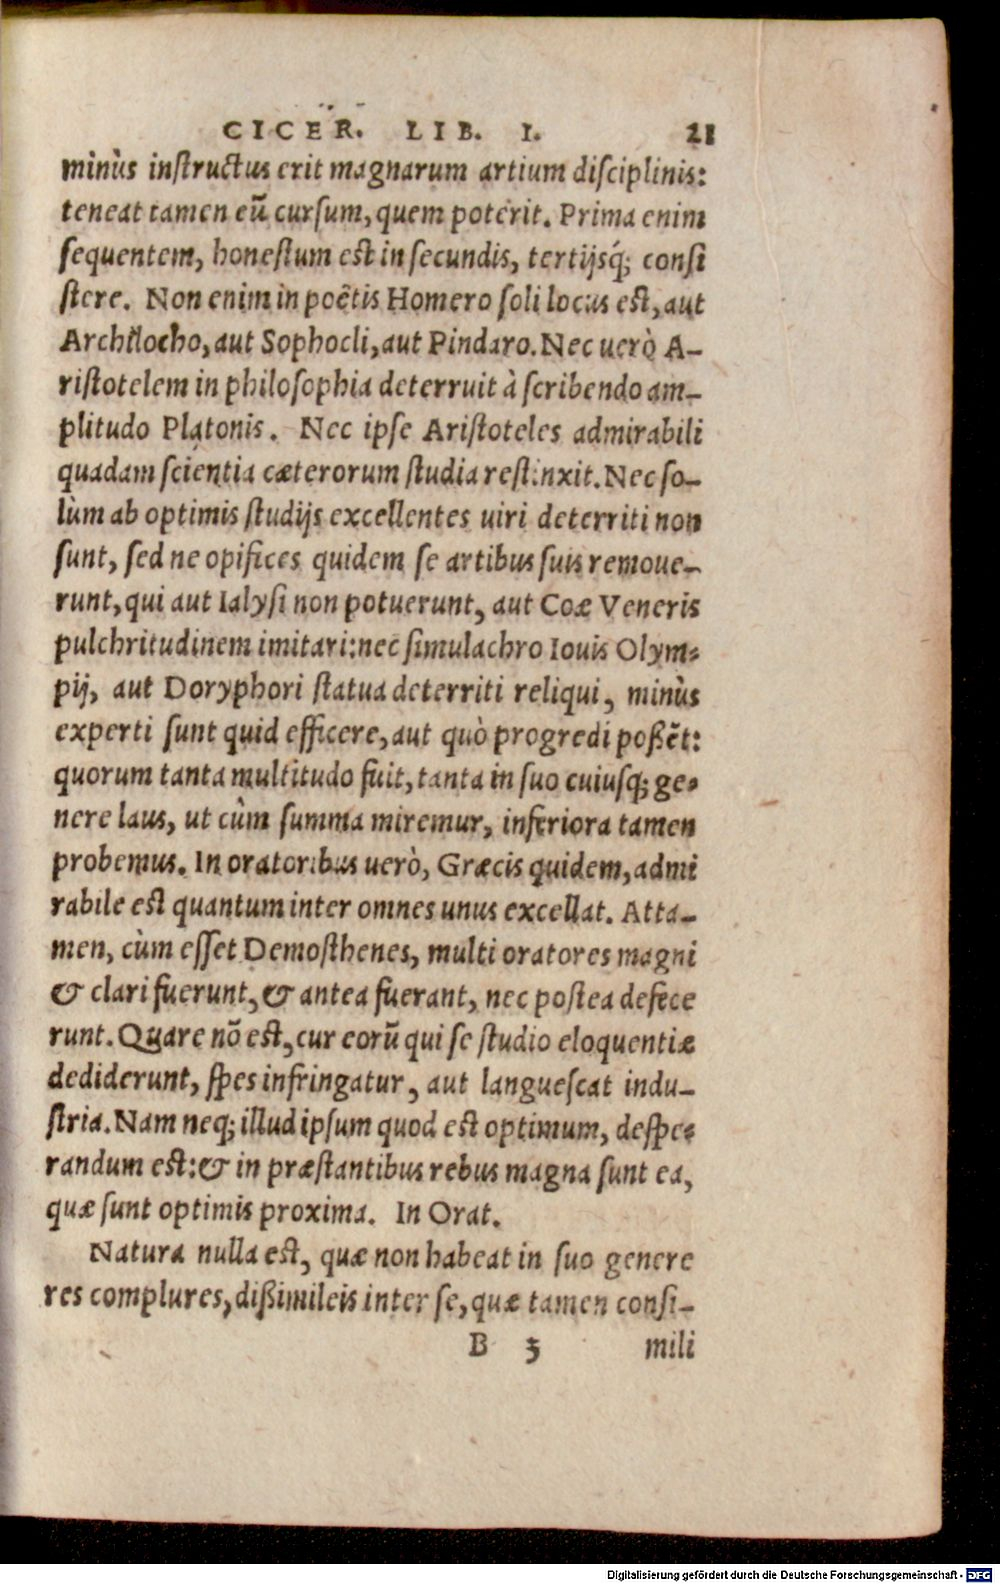 CICER. LIB. I. 21
minùs inſtructus erit magnarum artium diſciplinis:
teneat tamen eũ curſum, quem poterit. Prima enim
ſequentem, honeſtum eſt in ſecundis, tertijsq́; conſi
ſtere. Non enim in poëtis Homero ſoli locus eſt, aut
Archilocho, aut Sophocli, aut Pindaro. Nec uerò A-
riſtotelem in philoſophia deterruit à ſcribendo am-
plitudo Platonis. Nec ipſe Ariſtoteles admirabili
quadam ſcientia cæterorum ſtudia reſtinxit. Nec ſo-
lùm ab optimis ſtudijs excellentes uiri deterriti non
ſunt, ſed ne opifices quidem ſe artibus ſuis remoue-
runt, qui aut Ialyſi non potuerunt, aut Coæ Veneris
pulchritudinem imitari: nec ſimulachro Iouis Olym-
pij, aut Doryphori ſtatua deterriti reliqui, minùs
experti ſunt quid efficere, aut quò progredi poßẽt:
quorum tanta multitudo fuit, tanta in ſuo cuiuſq; ge-
nere laus, ut cùm ſumma miremur, inferiora tamen
probemus. In oratoribus uerò, Græcis quidem, admi
rabile eſt quantum inter omnes unus excellat. Atta-
men, cùm eſſet Demoſthenes, multi oratores magni
& clari fuerunt, & antea fuerant, nec poſtea defece
runt. Quare nõ eſt, cur eorũ qui ſe ſtudio eloquentiæ
dediderunt, ſpes infringatur, aut langueſcat indu-
ſtria. Nam neq; illud ipſum quod eſt optimum, deſpe-
randum eſt: & in præſtantibus rebus magna ſunt ea,
quæ ſunt optimis proxima. In Orat.
Natura nulla eſt, quæ non habeat in ſuo genere
res complures, dißimileis inter ſe, quæ tamen conſi-
B 3 mili
Digitalisierung gefördert durch die Deutsche Forschungsgemeinschaft - DFG